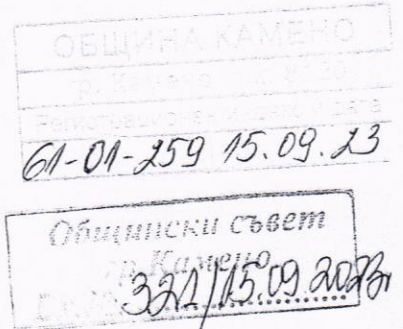 ОБЩИНА КАМЕНО
гр. Камено
Регистрационен индекс и дата
61-01-259 15.09.23
Общински съвет
гр. Камено
321/15.09.2023г.